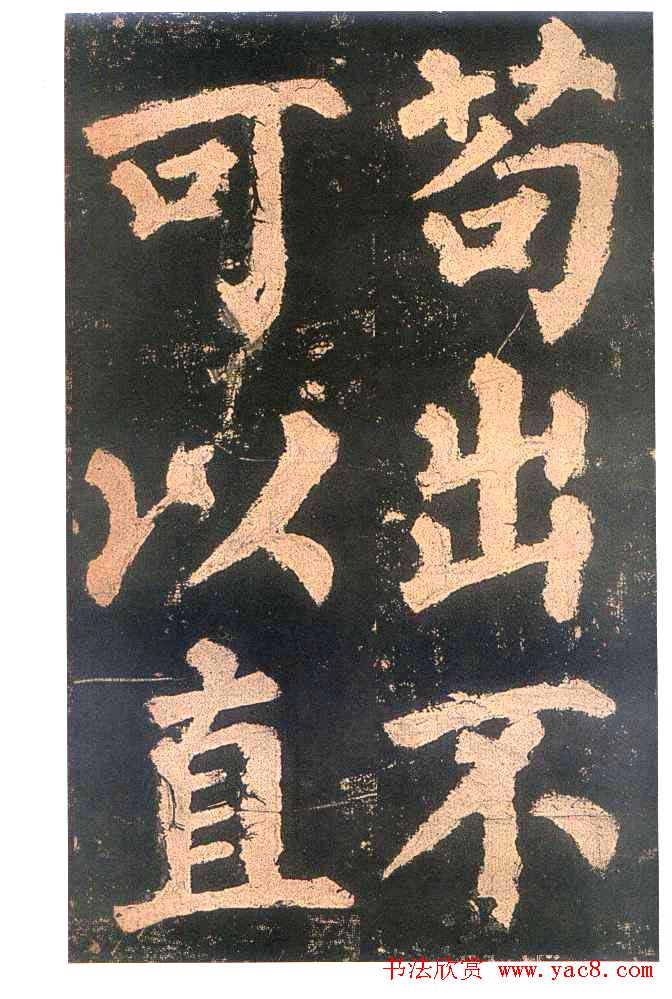 苟出不
可以直
书法欣赏 www.yac8.com